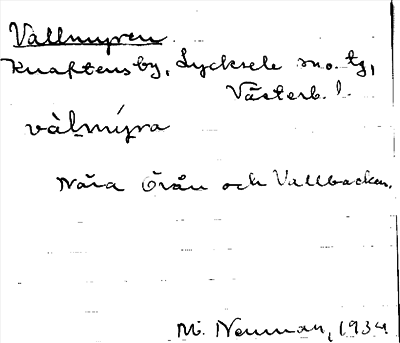 Vallmyren
Knaftens by, Lycksele sno. tg,
Västerb. l.
vàlmýra
Nära Örån och Vallbacken.
M. Neuman, 1934